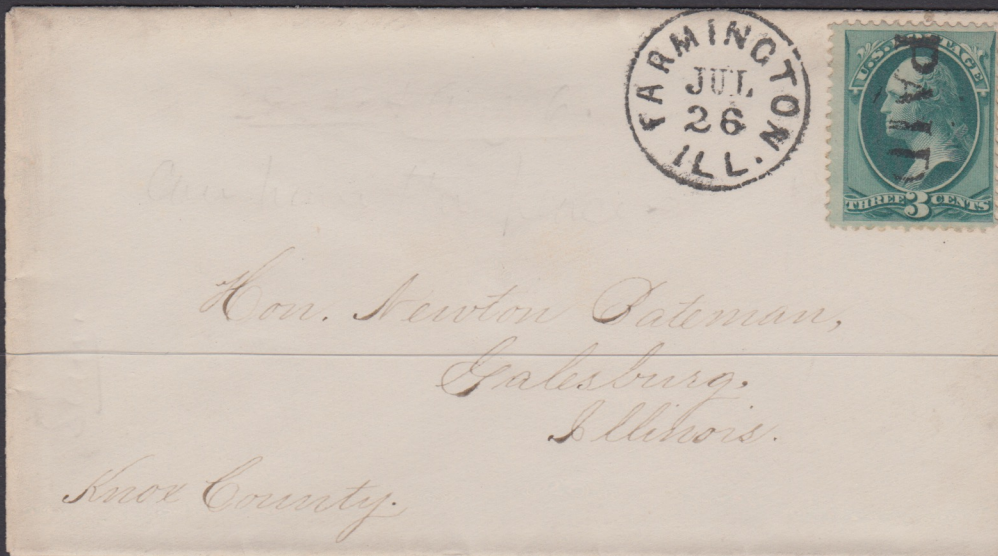 FARMINGTON
JUL
26
ILL.
U.S. POSTAGE
PAID
THREE 3 CENTS
Hon. Newton Bateman,
Galesburg,
Illinois.
Knox County.